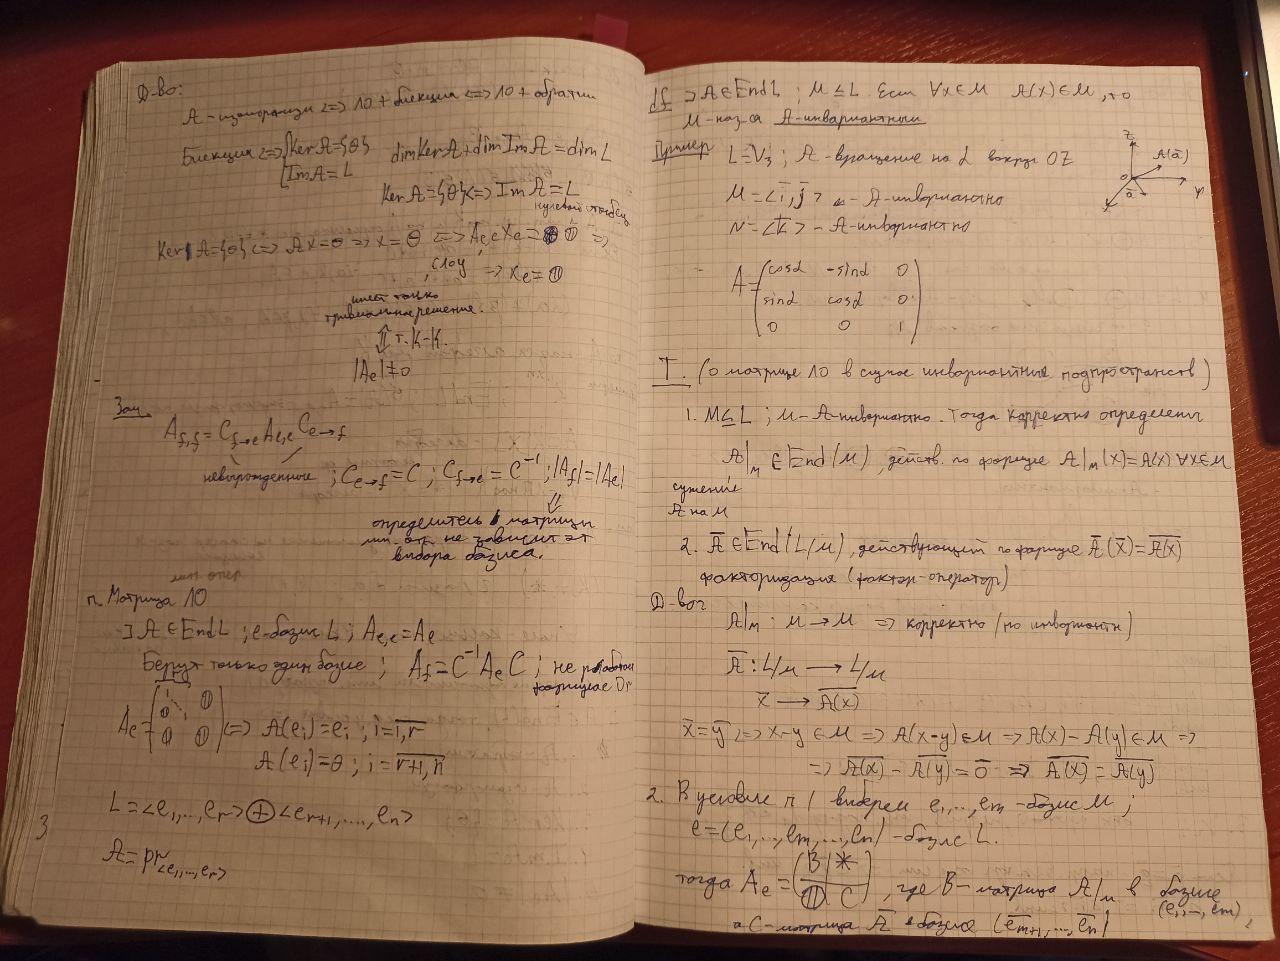 Д-во:
A - изоморфизм <=> ЛО + биекция <=> ЛО + обратим
Биекция <=> { Ker A = {θ}   dim Ker A + dim Im A = dim L
Im A = L
Ker A = {θ} <=> Im A = L
нулевой столбец
Ker A = {θ} <=> Ax = θ => x = θ <=> A_{e,e} x_e = 𝟘 =>
слоу => x_e = 𝟘
имеет только
тривиальное решение.
⇕ т. К-К.
|A_e| ≠ 0
Зам.
A_{f,f} = C_{f→e} A_{e,e} C_{e→f}
невырожденные ; C_{e→f} = C ; C_{f→e} = C^{-1} ; |A_f| = |A_e|
⇓
определитель матрицы
лин. отн. не зависит от
выбора базиса.
лин. опер
п. Матрица ЛО
∃ A ∈ End L ; e - базис L ; A_{e,e} = A_e
Берут только один базис ; A_f = C^{-1} A_e C ; не работает
формула D_r
A_e = (1 ⋱ 𝟘 𝟘 𝟘) <=> A(e_i) = e_i ; i = \overline{1,r}
A(e_i) = θ ; i = \overline{r+1,n}
L = <e_1,...,e_r> ⊕ <e_{r+1},...,e_n>
3
A = pr_{<e_1,...,e_r>}
df ∃ A ∈ End L ; M ≤ L. Если ∀x∈M A(x) ∈ M, то
M - наз-ся A-инвариантным
Пример L = V_3 ; A - вращение на α вокруг OZ
z A(ā) 0 ā y x
M = <i, j> - A-инвариантно
N = <k> - A-инвариантно
A = (cosα -sinα 0
sinα cosα 0
0 0 1)
Т. (о матрице ЛО в случае инвариантных подпространств)
1. M ≤ L ; M - A-инвариантно. Тогда корректно определены
A|_M ∈ End(M), действ. по формуле A|_M(x) = A(x) ∀x∈M
сужение
A на M
2. Ā ∈ End(L/M), действующий по формуле Ā(x̄) = \overline{A(x)}
факторизация (фактор-оператор)
Д-во:
A|_M : M → M => корректно (по инвариантн)
Ā : L/M → L/M
x̄ → \overline{A(x)}
x̄ = ȳ <=> x-y ∈ M => A(x-y) ∈ M => A(x) - A(y) ∈ M =>
=> \overline{A(x)} - \overline{A(y)} = 0̄ => \overline{A(x)} = \overline{A(y)}
2. В условие п 1 выберем e_1,...,e_m - базис M ;
e = (e_1,...,e_m,...,e_n) - базис L.
тогда A_e = (B | * / 𝟘 | C), где B - матрица A|_M в базисе
(e_1,...,e_m),
а C - матрица Ā в базисе (ē_{m+1},...,ē_n)